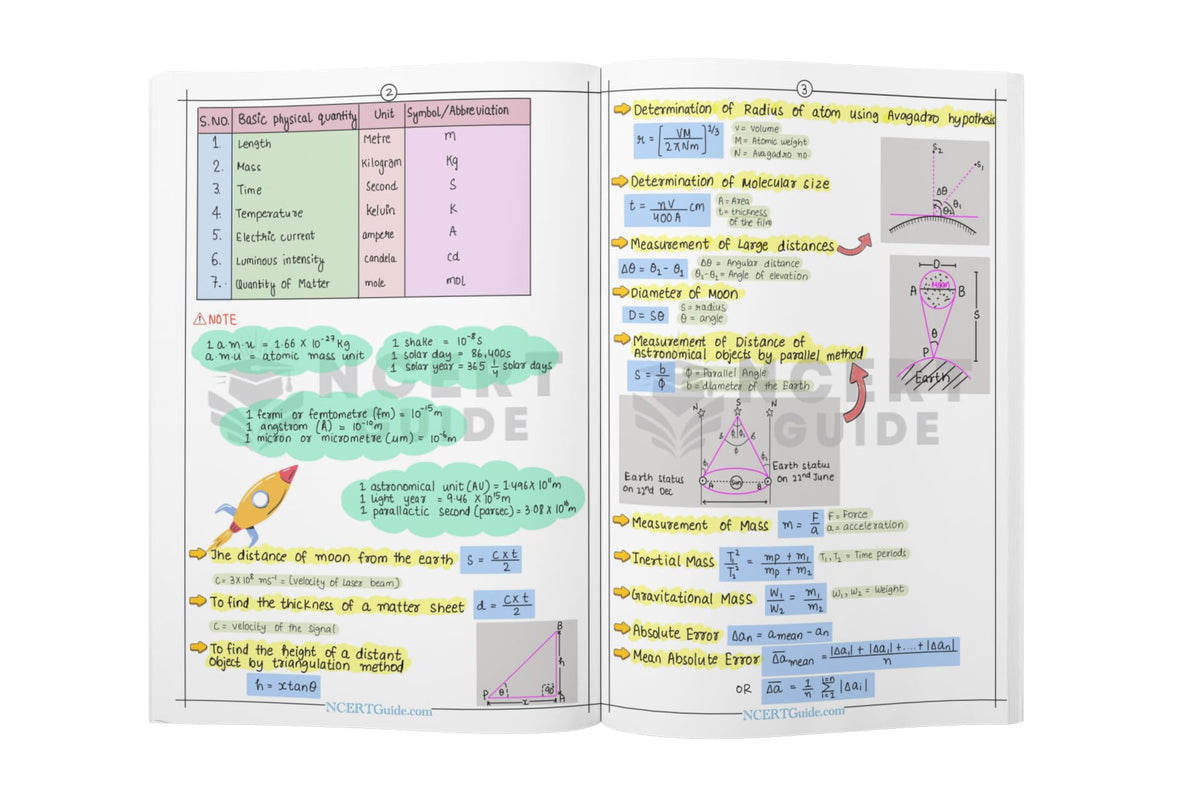 2
S.NO. Basic physical quantity Unit Symbol/Abbreviation
1. Length Metre m
2. Mass Kilogram Kg
3. Time Second S
4. Temperature kelvin K
5. Electric current ampere A
6. Luminous intensity candela cd
7. Quantity of Matter mole mol
NOTE
1 a.m.u = 1.66 X 10⁻²⁷kg
a.m.u = atomic mass unit
1 shake = 10⁻⁸s
1 solar day = 86,400s
1 solar year = 365 1/4 solar days
1 fermi or femtometre (fm) = 10⁻¹⁵m
1 angstrom (A) = 10⁻¹⁰m
1 micron or micrometre (um) = 10⁻⁶m
1 astronomical unit (AU) = 1.496X 10¹¹m
1 light year = 9.46 X10¹⁵m
1 parallactic second (parsec) = 3.08 X 10¹⁶m
The distance of moon from the earth S = cxt/2
C = 3X10⁸ ms⁻¹ = (velocity of laser beam)
To find the thickness of a matter sheet d = cxt/2
C = velocity of the signal
To find the height of a distant
object by triangulation method
h = xtanθ
B
h
P θ 90° A
x
NCERTGuide.com
NCERT
GUIDE
3
Determination of Radius of atom using Avagadro hypothesis
r = [VM/2πNm]^2/3
V = Volume
M = Atomic weight
N = Avagadro no.
Determination of Molecular size
t = nV/400A cm
A = Area
t = thickness
of the film
S2
S1
Δθ
θ1
θ2
Measurement of Large distances
Δθ = θ2 - θ1
Δθ = Angular distance
θ2-θ1 = Angle of elevation
Diameter of Moon
D = Sθ
S = radius
θ = angle
D
A Moon B
S
θ
P
Earth
Measurement of Distance of
Astronomical objects by parallel method
S = b/ϕ
ϕ = Parallel Angle
b = diameter of the Earth
NCERT
GUIDE
N S N
Earth status
on 22nd Dec
A Sun B
Earth status
on 22nd June
Measurement of Mass m = F/a
F = Force
a = acceleration
Inertial Mass T1²/T2² = mp + m1/mp + m2
T1, T2 = Time periods
Gravitational Mass W1/W2 = m1/m2
W1, W2 = Weight
Absolute Error Δan = amean - an
Mean Absolute Error Δa̅mean = |Δa1| + |Δa1| +....+ |Δan|/n
OR Δa̅ = 1/n Σ i=1 i=n |Δai|
NCERTGuide.com